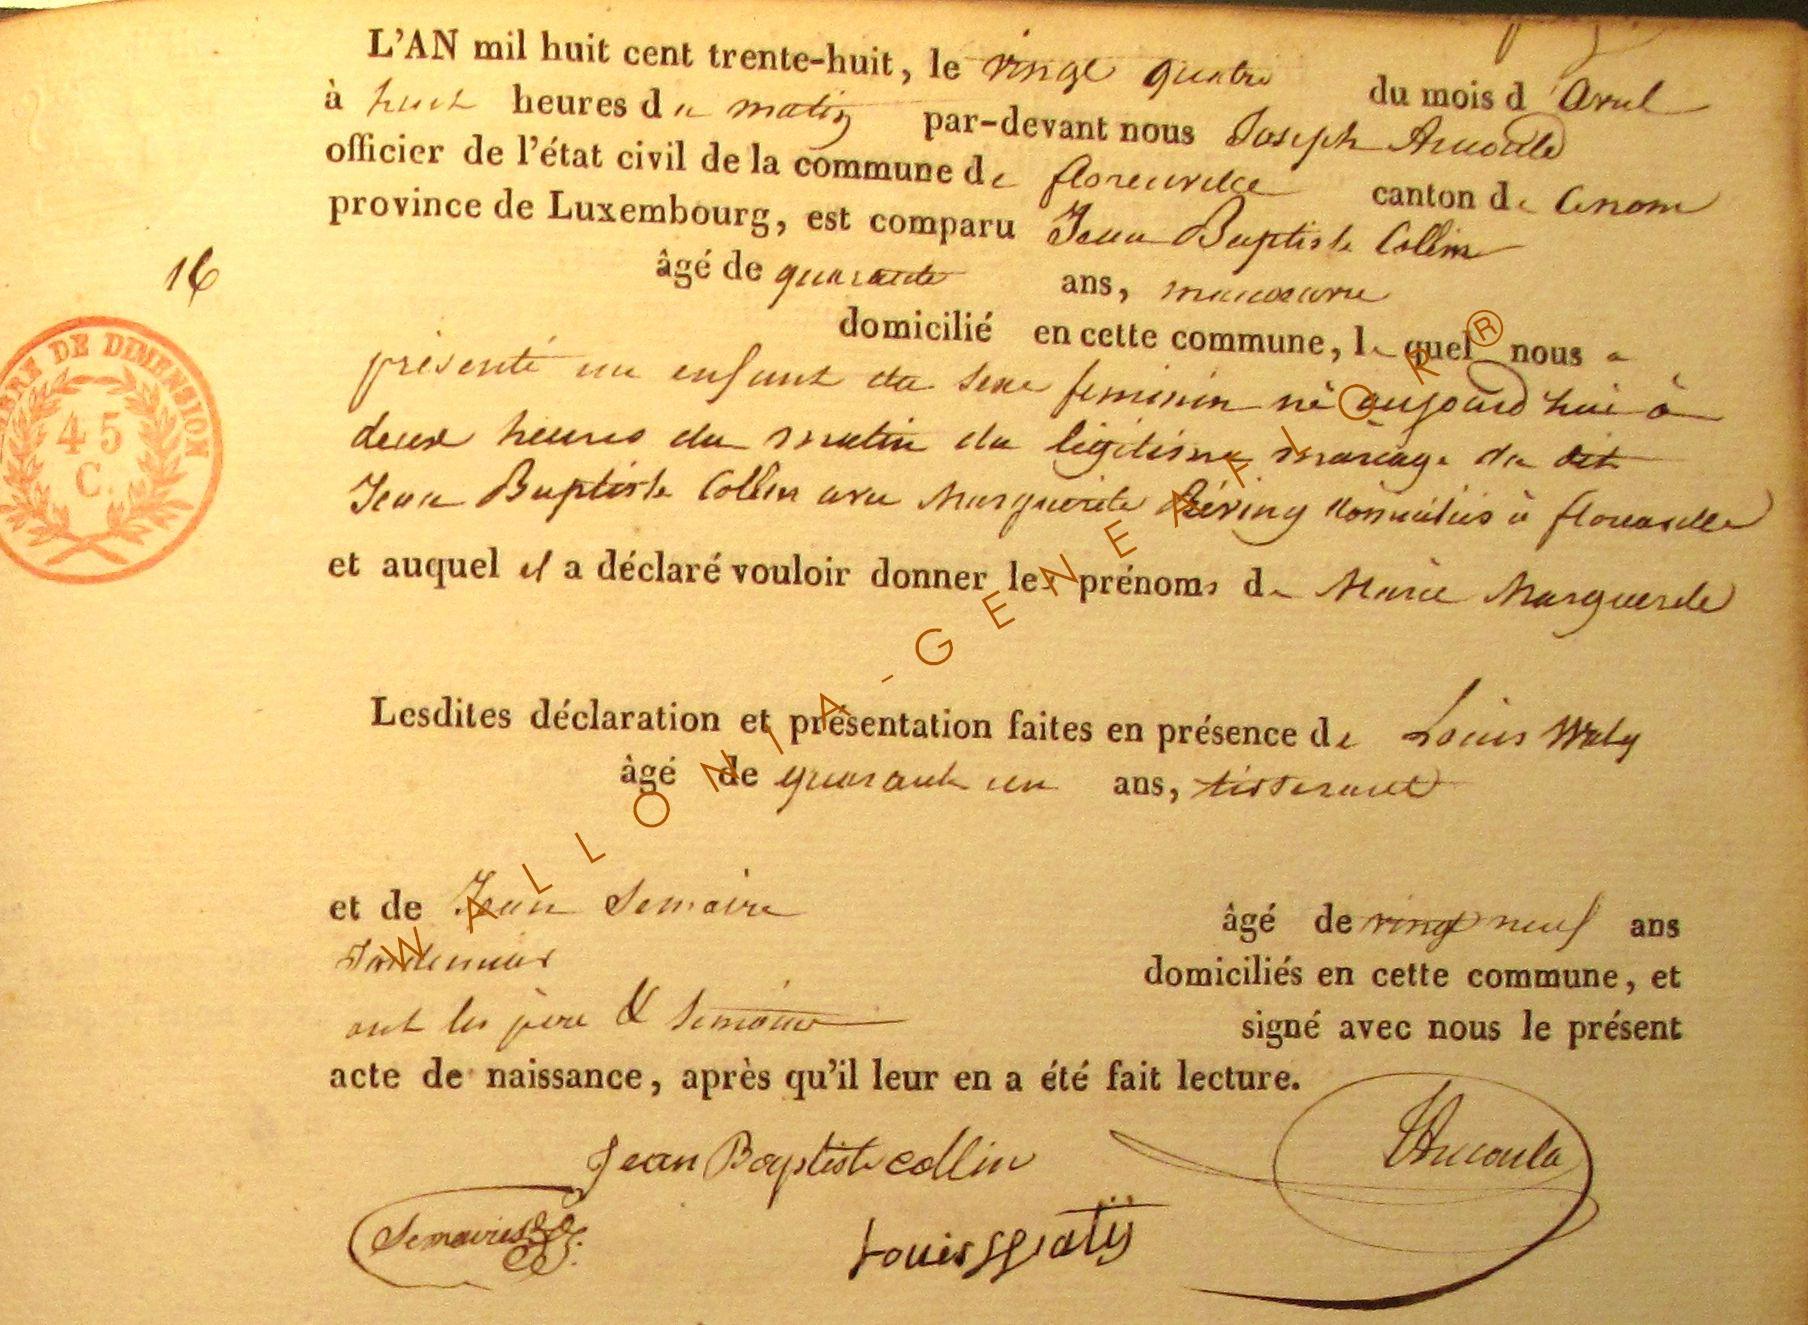 L'AN mil huit cent trente-huit, le vingt quatre du mois d'avril
à huit heures du matin par-devant nous Joseph
officier de l'état civil de la commune de florenville canton de
province de Luxembourg, est comparu Jean Baptiste Collin
16
âgé de quarante ans, manoeuvre
domicilié en cette commune, le quel nous a
TIMBRE DE DIMENSION
45
C.
présenté un enfant du sexe feminin né aujourd'hui à
deux heures du matin du légitime mariage du dit
Jean Baptiste Collin avec Marguerite domiciliés à florenville
et auquel il a déclaré vouloir donner les prénoms de Marie Marguerite
Lesdites déclaration et présentation faites en présence de Louis Waty
âgé de quarante un ans, tisserand
et de Jean Semaire âgé de vingt neuf ans
domiciliés en cette commune, et
ont les père & Semaire signé avec nous le présent
acte de naissance, après qu'il leur en a été fait lecture.
Jean Baptiste Collin
Louis Watÿ
WALLONIA-GENEAFLOR®